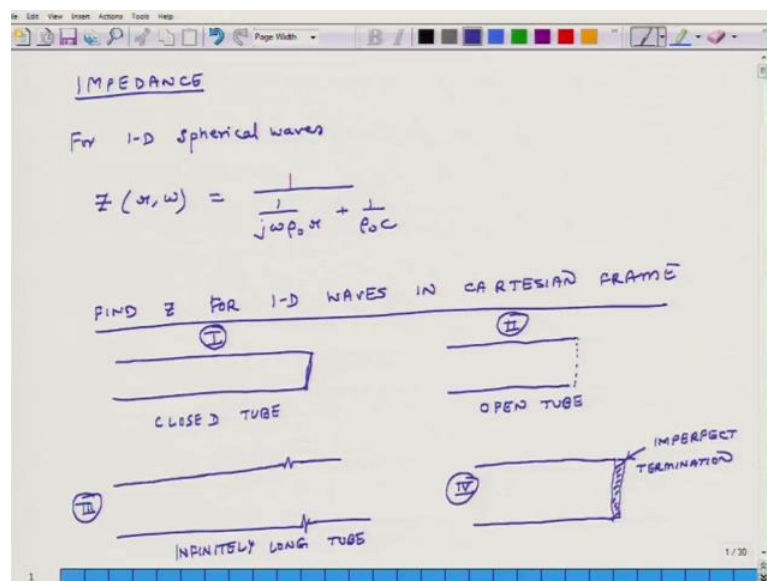 File Edit View Insert Actions Tools Help
Page Width
B I
IMPEDANCE
For 1-D spherical waves
Z (r, ω) = 1 / (1/(jωρ₀r) + 1/(ρ₀c))
FIND Z FOR 1-D WAVES IN CARTESIAN FRAME
I
CLOSED TUBE
II
OPEN TUBE
III
INFINITELY LONG TUBE
IV
IMPERFECT
TERMINATION
1/30
1